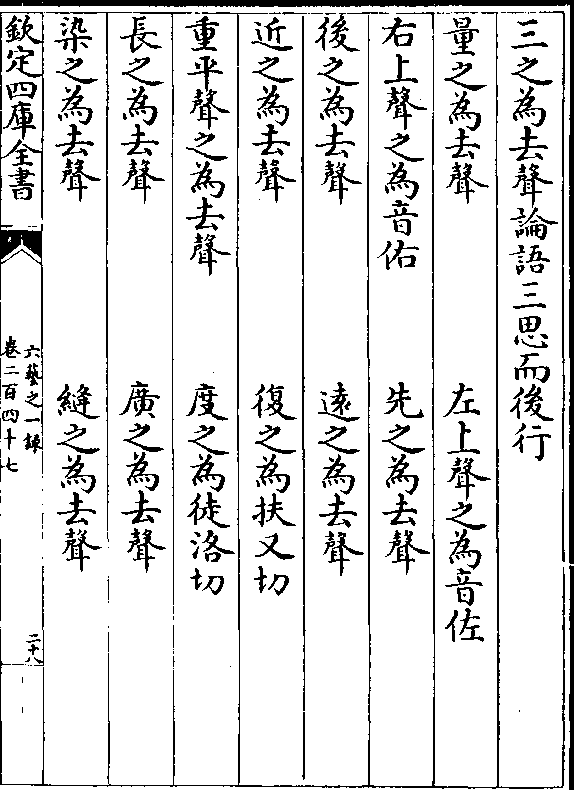 三之為去聲論語三思而後行
量之為去聲　左上聲之為音佐
右上聲之為音佑　先之為去聲
後之為去聲　遠之為去聲
近之為去聲　復之為扶又切
重平聲之為去聲　度之為徒洛切
長之為去聲　廣之為去聲
染之為去聲　縫之為去聲
欽定四庫全書
六藝之一錄
卷二百四十七
二十八